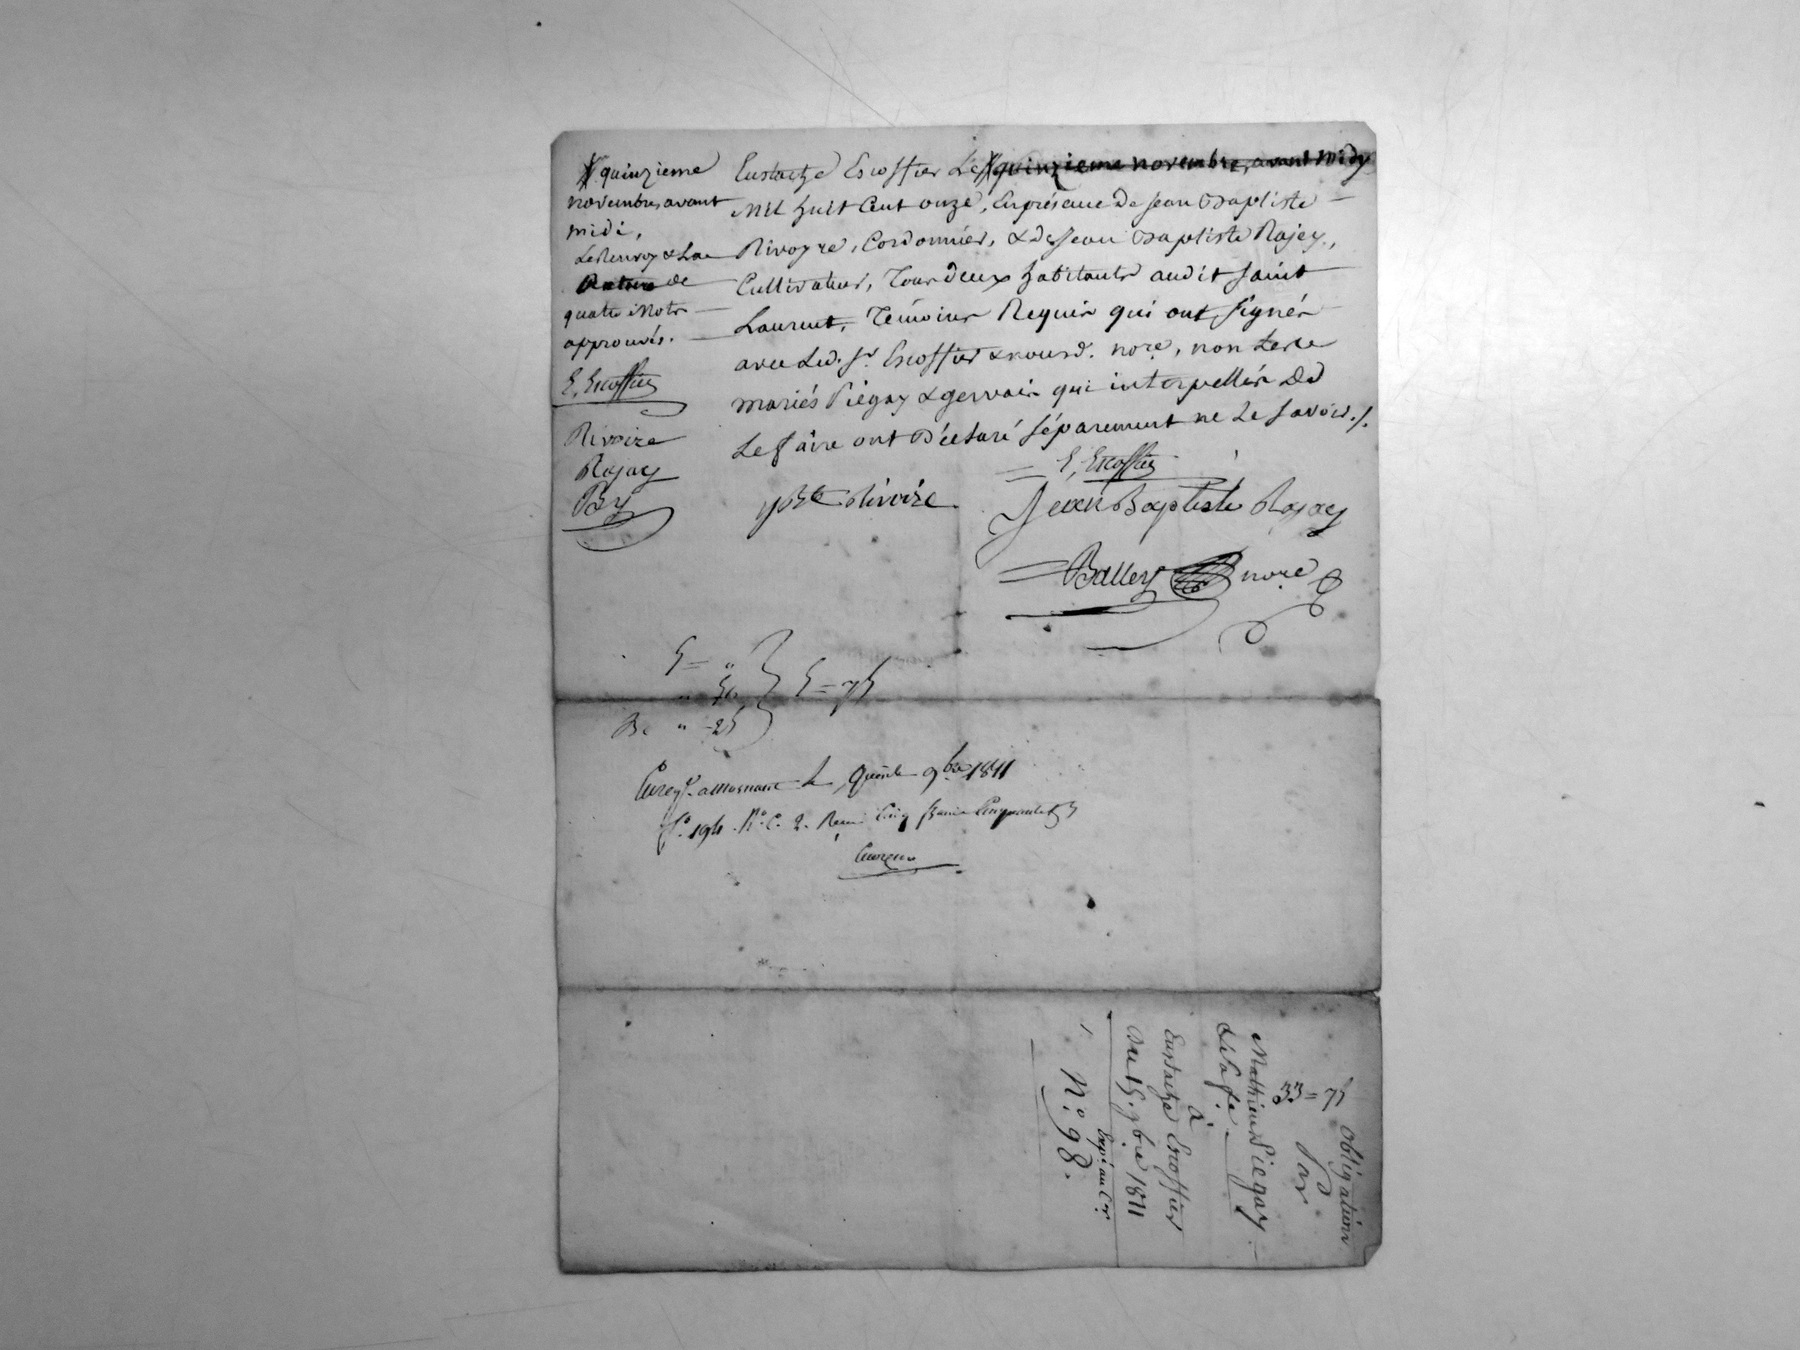 quinzieme
novembre avant
midi,
Le Renvoy & La
Rature de
quatre mots
approuvés.
E, Escoffier
Rivoire
Rojay
By
Eustache Escoffier Le quinzieme novembre, avant midy
Mil huit Cent onze, En présence de Jean Baptiste
Rivoyre, Cordonnier, & de Jean Baptiste Rojey,
Cultivateur, Tous deux habitants audit Saint
Laurent, Témoins Requis qui ont signés
avec Led. Sr. Escoffier & nousd. nore, non Lesd.
mariés Piégay & gervais qui interpellés de
Le faire ont Déclaré séparement ne Le Savoir./.
E, Escoffier
jBte Rivoire
Jean Baptiste Rojay
Balley nore
5 = "
" 50
5 = 75
" 25
Enregt. a Mornant Le quinze 9bre 1811
fo. 194. Ro. C. 2. Recu Cinq francs Cinquante
obligation
33 = 75
Par
Mathieu Piegay
& Sa fe.
à
Eustache Escoffier
Du 15. 9bre 1811
N.o 98.